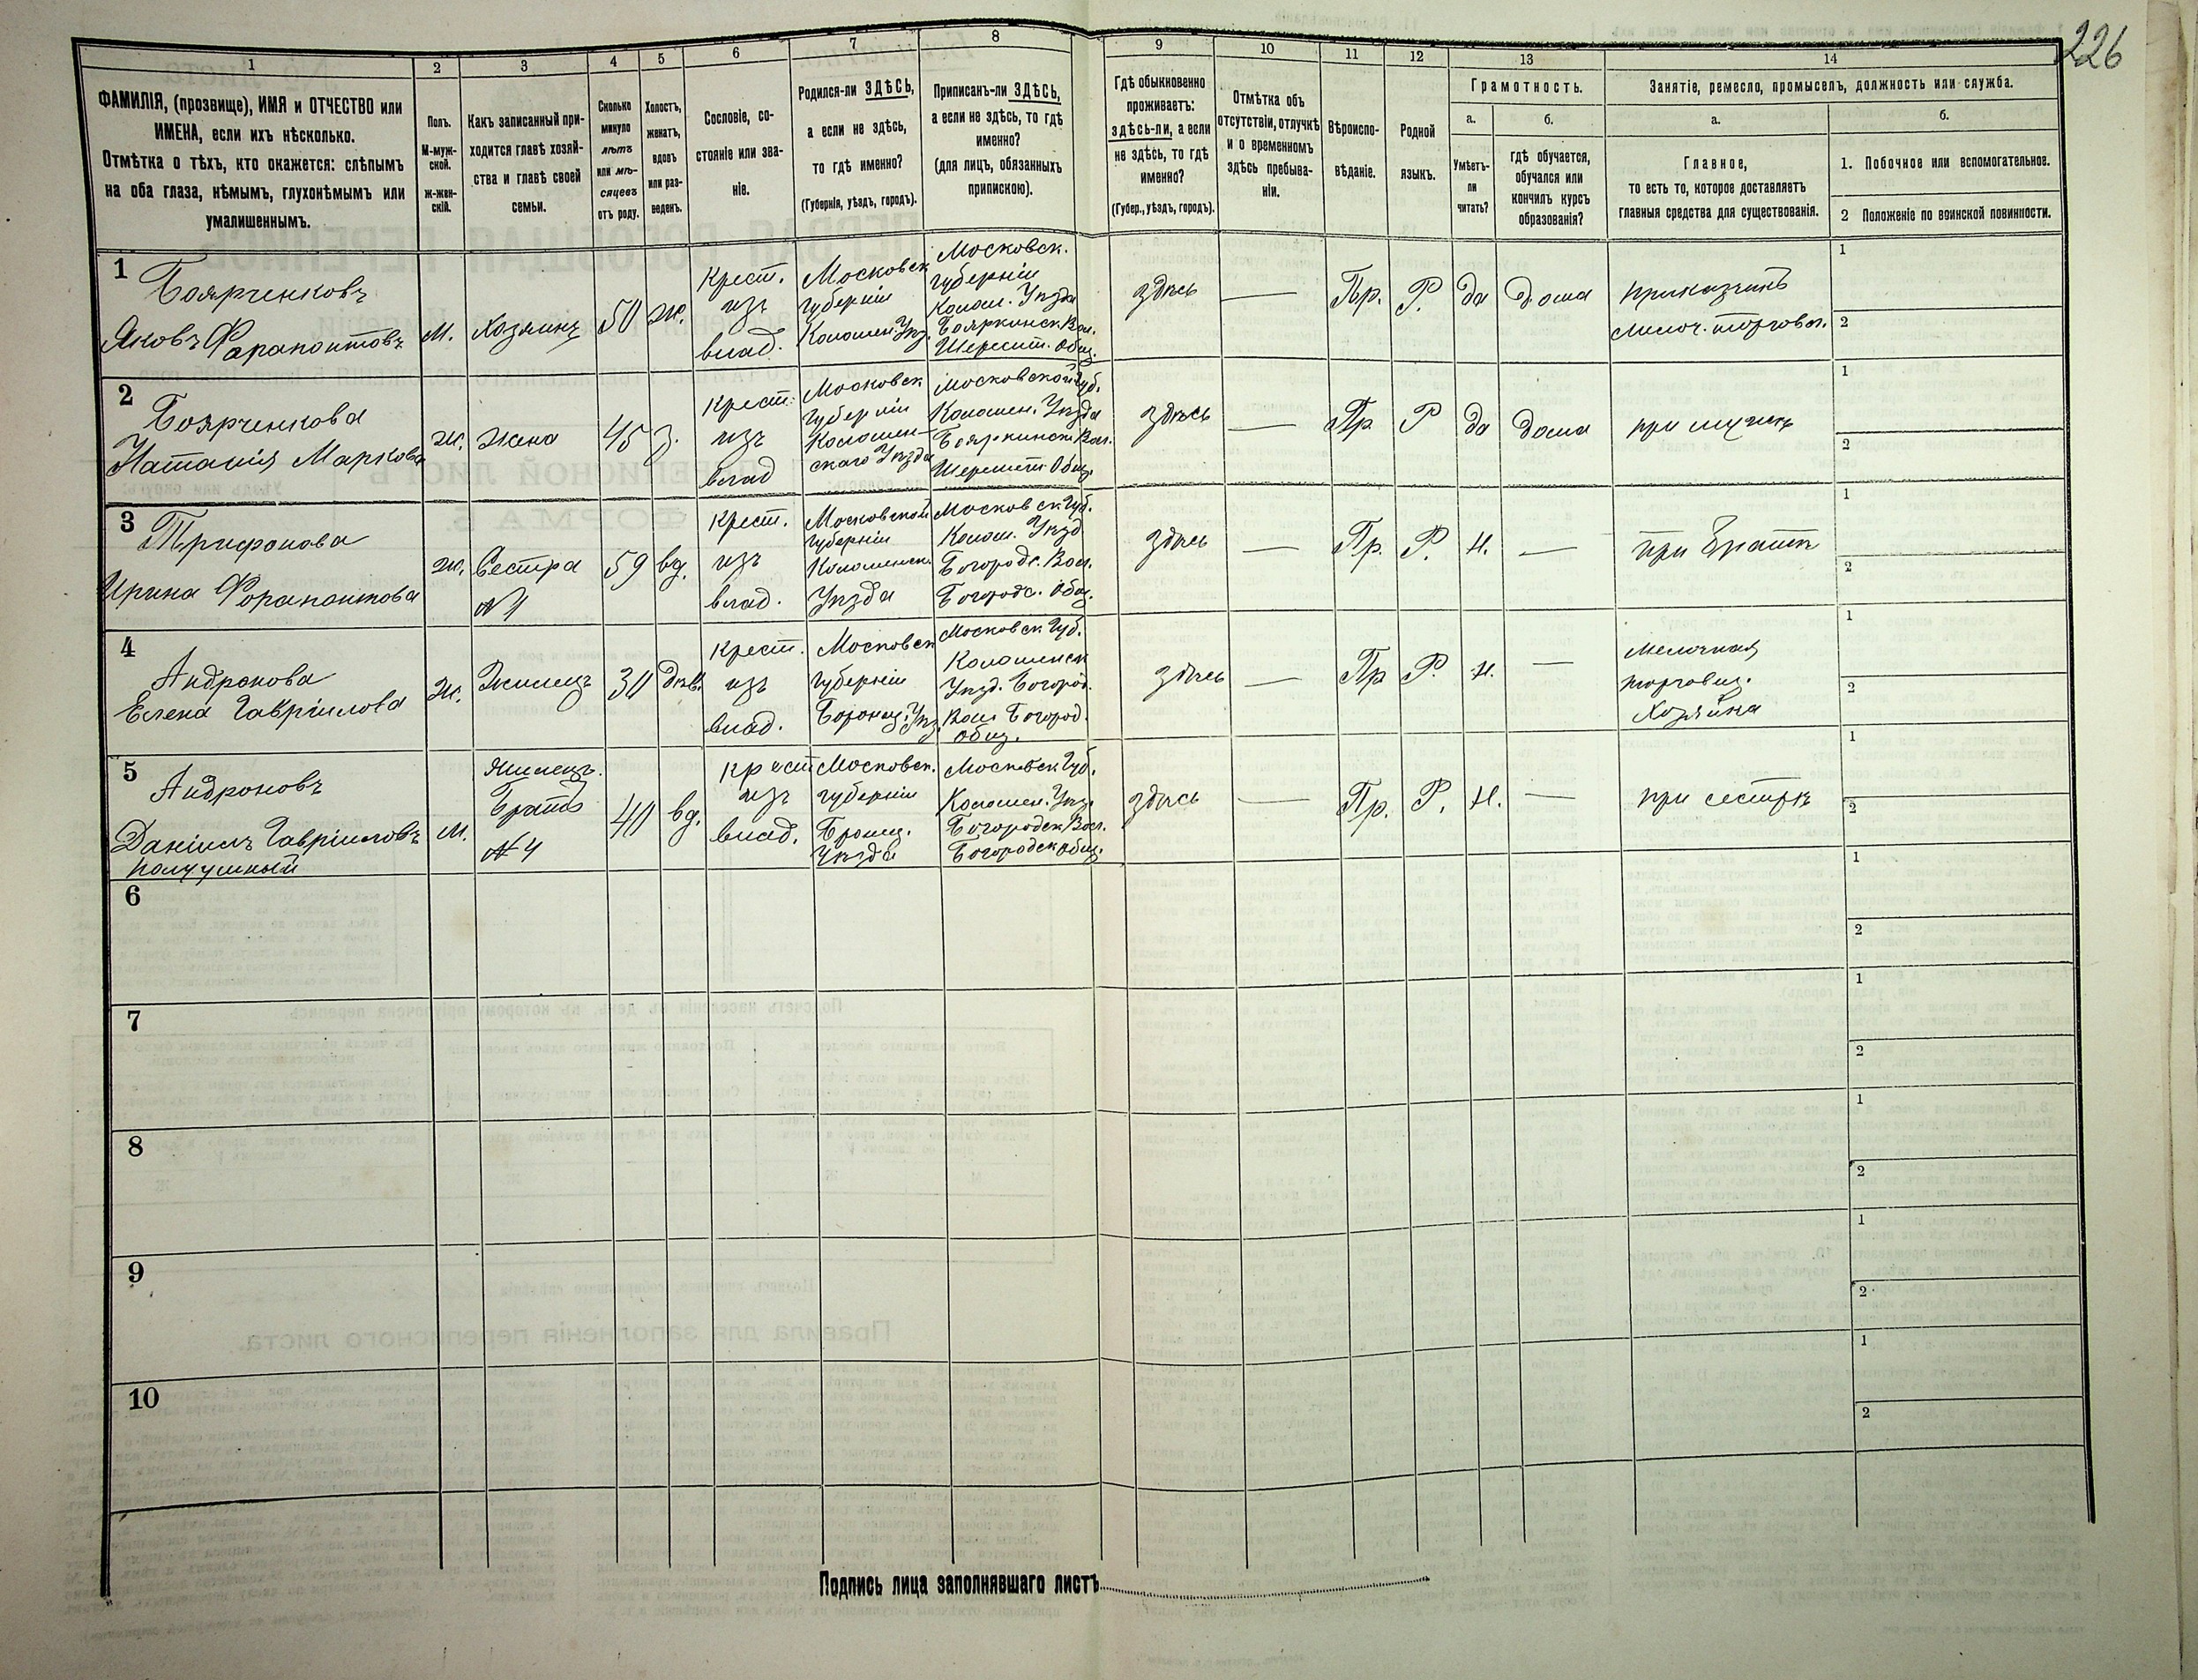 226
1
2
3
4
5
6
7
8
9
10
11
12
13
14
ФАМИЛІЯ, (прозвище), ИМЯ и ОТЧЕСТВО или
ИМЕНА, если ихъ нѣсколько.
Отмѣтка о тѣхъ, кто окажется: слѣпымъ
на оба глаза, нѣмымъ, глухонѣмымъ или
умалишеннымъ.
Полъ.
М-муж-
ской.
ж-жен-
скій.
Какъ записанный при-
ходится главѣ хозяй-
ства и главѣ своей
семьи.
Сколько
минуло
лѣтъ
или мѣ-
сяцевъ
отъ роду.
Холостъ,
женатъ,
вдовъ
или раз-
веденъ.
Сословіе, со-
стояніе или зва-
ніе.
Родился-ли ЗДѢСЬ,
а если не здѣсь,
то гдѣ именно?
(Губернія, уѣздъ, городъ).
Приписанъ-ли ЗДѢСЬ,
а если не здѣсь, то гдѣ
именно?
(для лицъ, обязанныхъ
припискою).
Гдѣ обыкновенно
проживаетъ:
здѣсь-ли, а если
не здѣсь, то гдѣ
именно?
(Губер., уѣздъ, городъ).
Отмѣтка объ
отсутствіи, отлучкѣ
и о временномъ
здѣсь пребыва-
ніи.
Вѣроиспо-
вѣданіе.
Родной
языкъ.
Грамотность.
а.
Умѣетъ-
ли
читать?
б.
гдѣ обучается,
обучался или
кончилъ курсъ
образованія?
Занятіе, ремесло, промыселъ, должность или служба.
а.
Главное,
то есть то, которое доставляетъ
главныя средства для существованія.
б.
1. Побочное или вспомогательное.
2 Положеніе по воинской повинности.
1
Боярченковъ
Яковъ Фарапонтовъ
М.
Хозяинъ
50
Ж.
Крест.
изъ
влад.
Московск
губерніи
Коломен. Уѣз.
Московск.
губерніи
Колом. Уѣзда
Бояркинск Вол.
Шеремет. Общ.
здѣсь
—
Пр.
Р.
да
дома
приказчикъ
мелоч. торговл.
1
2
2
Боярченкова
Наталія Маркова
Ж.
жена
45
з.
Крест.
изъ
влад
Московск
губерніи
Коломен-
скаго Уѣзда
Московской Губ.
Коломен. Уѣзда
Бояркинск Вол.
Шеремет. Общ.
здѣсь
—
Пр
Р
да
дома
при мужѣ
1
2
3
Трифонова
Ирина Форапонтова
ж.
Сестра
№ 1
59
вд.
Крест.
изъ
влад.
Московской
губерніи
Коломенск.
Уѣзда
Московск Губ.
Колом. Уѣзд.
Богородс. Вол.
Богородс. Общ.
здѣсь
—
Пр.
Р.
н.
—
при братѣ
1
2
4
Андронова
Елена Гавріилова
Ж.
Жилецъ
30
Дѣв.
Крест.
изъ
влад.
Московск
губерніи
Бронниц. Уѣз.
Московск Губ.
Коломенск
Уѣзд. Богород.
Вол. Богород.
Общ.
здѣсь
—
Пр
Р.
н.
—
мелочная
торговец.
Хозяйка
1
2
5
Андроновъ
Даніилъ Гавріиловъ
полуумный
М.
Жилецъ.
Братъ
№ 4
40
вд.
Крест
изъ
влад.
Московск.
губерніи
Бронниц.
Уѣзда
Московск Губ.
Коломен. Уѣз.
Богородск Вол.
Богородск Общ.
здѣсь
—
Пр.
Р.
н.
—
при сестрѣ
1
2
6
1
2
7
1
2
8
1
2
9
1
2
10
1
2
Подпись лица заполнявшаго листъ